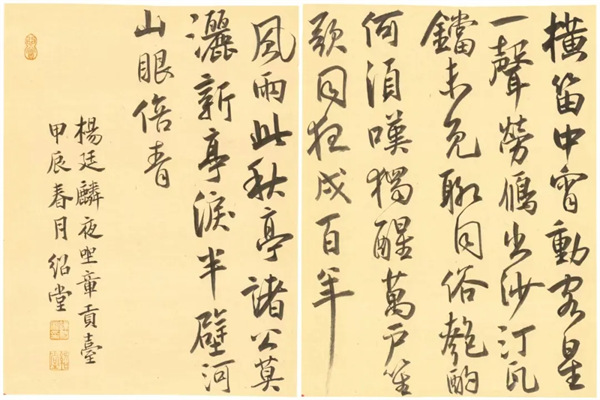 橫笛中宵動客星
一聲勞鴈出沙汀瓦
鐺未免聊同俗匏酌
何須嘆獨醒萬戶笙
歌同狂成百年
風雨此秋亭諸公莫
灑新亭淚半壁河
山眼倍青
楊廷麟夜坐章貢臺
甲辰春月紹堂